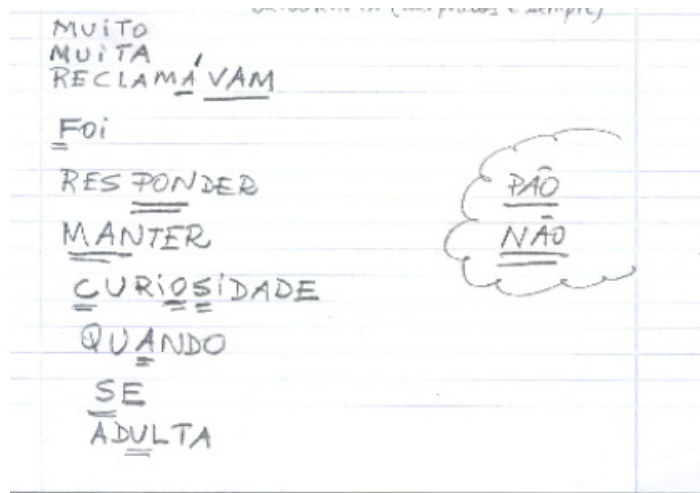 MUITO
MUITA
RECLAMÁVAM
FOI
RESPONDER
MANTER
CURIOSIDADE
QUANDO
SE
ADULTA
PÃO
NÃO